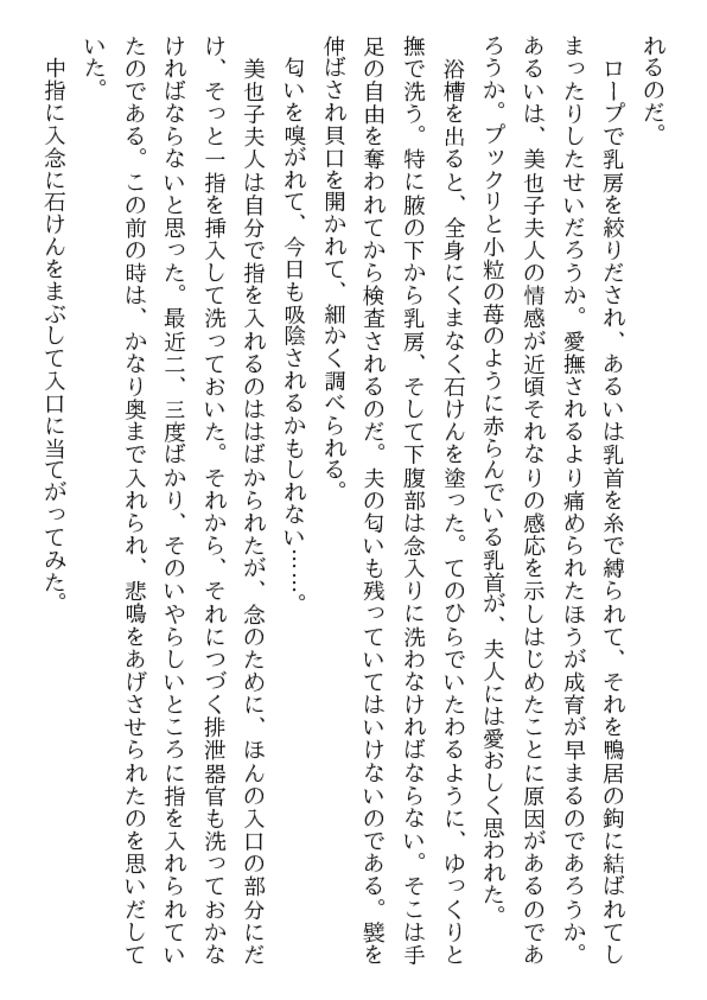 れるのだ。
　ロープで乳房を絞りだされ、あるいは乳首を糸で縛られて、それを鴨居の鉤に結ばれてし
まったりしたせいだろうか。愛撫されるより痛められたほうが成育が早まるのであろうか。
あるいは、美也子夫人の情感が近頃それなりの感応を示しはじめたことに原因があるのであ
ろうか。プックリと小粒の苺のように赤らんでいる乳首が、夫人には愛おしく思われた。
　浴槽を出ると、全身にくまなく石けんを塗った。てのひらでいたわるように、ゆっくりと
撫で洗う。特に腋の下から乳房、そして下腹部は念入りに洗わなければならない。そこは手
足の自由を奪われてから検査されるのだ。夫の匂いも残っていてはいけないのである。襞を
伸ばされ貝口を開かれて、細かく調べられる。
　匂いを嗅がれて、今日も吸陰されるかもしれない……。
　美也子夫人は自分で指を入れるのははばかられたが、念のために、ほんの入口の部分にだ
け、そっと一指を挿入して洗っておいた。それから、それにつづく排泄器官も洗っておかな
ければならないと思った。最近二、三度ばかり、そのいやらしいところに指を入れられてい
たのである。この前の時は、かなり奥まで入れられ、悲鳴をあげさせられたのを思いだして
いた。
　中指に入念に石けんをまぶして入口に当てがってみた。